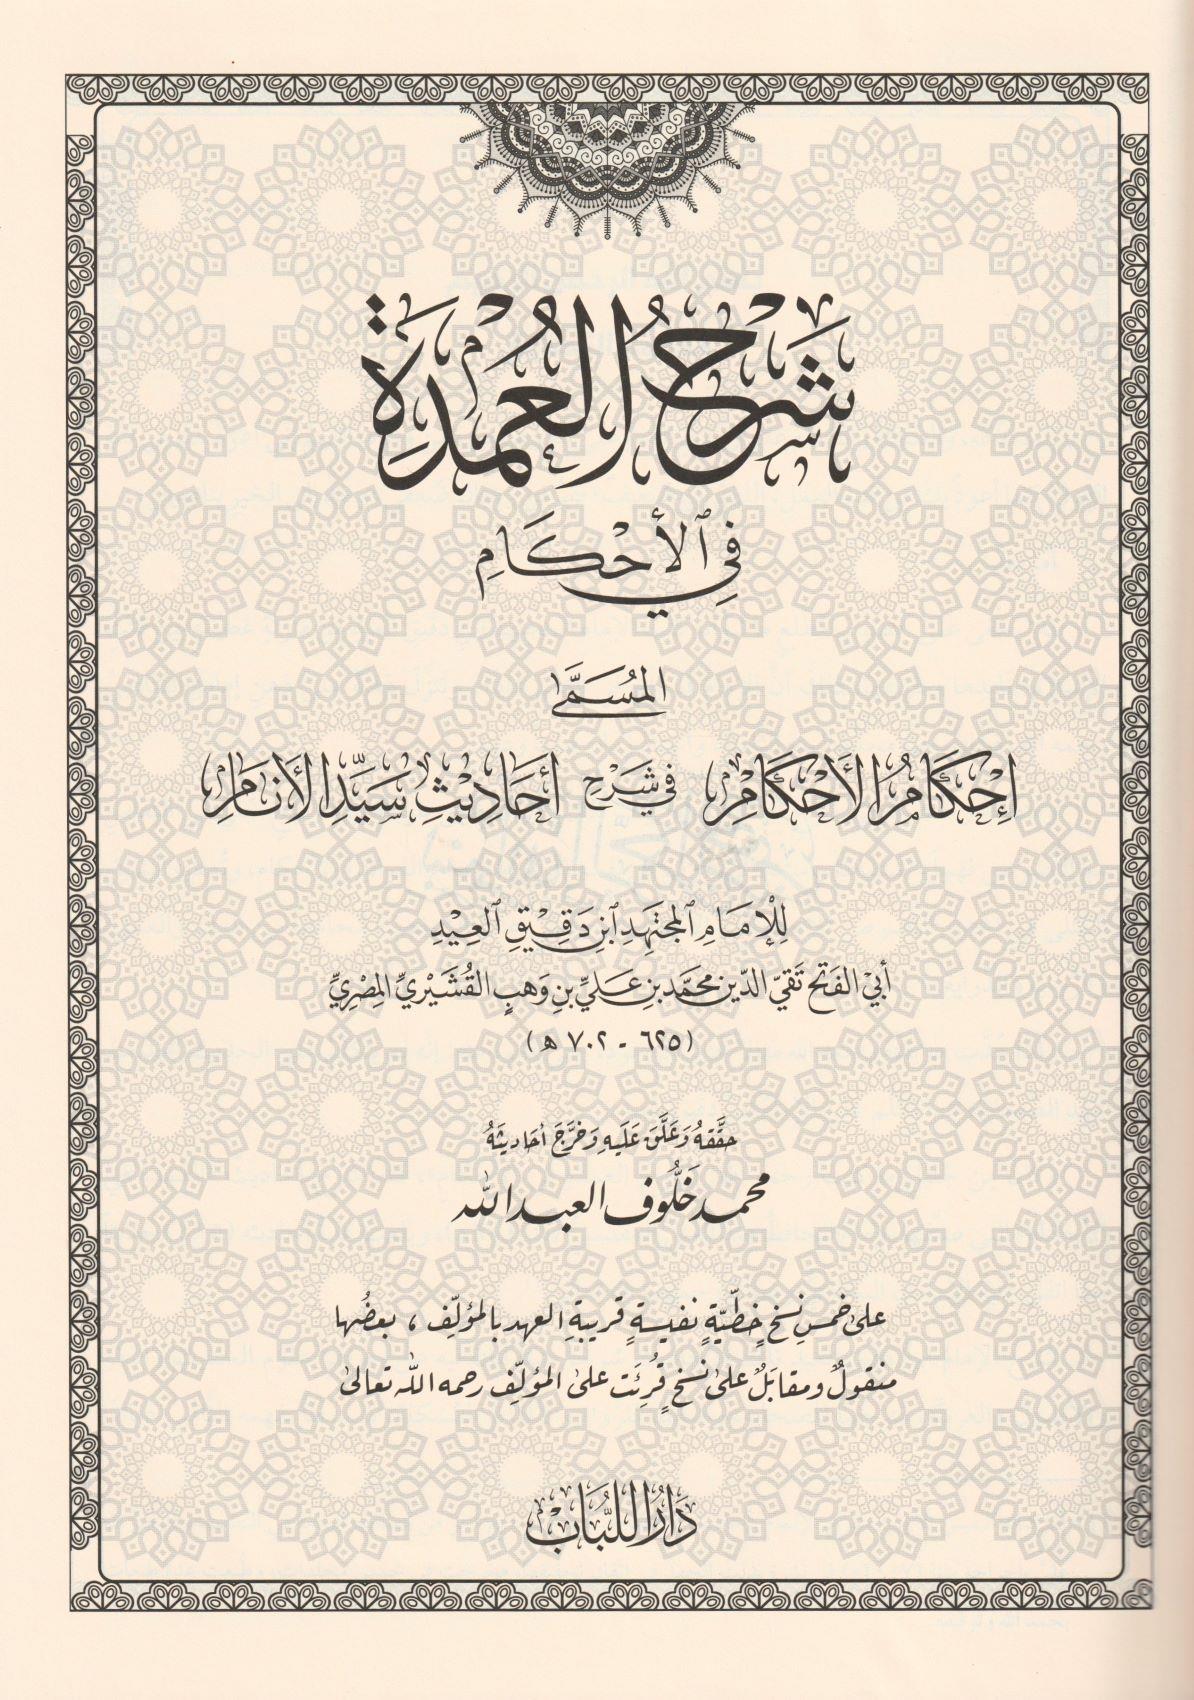 شَرْحُ العُمْدَةِ
فِي ٱلأَحْكَامِ
المُسَمَّىٰ
إِحْكَامُ الأَحْكَامِ فِي شَرْحِ أَحَادِيثِ سَيِّدِ الأَنَامِ
لِلْإِمَامِ ٱلمُجْتَهِدِ ٱبْنِ دَقِيْقِ ٱلعِيْدِ
أَبِيْ الفَتْحِ تَقِيِّ الدِّينِ محمَّد بنِ عَلِيِّ بنِ وَهبٍ القُشَيْرِيِّ المِصْرِيِّ
(٦٢٥ - ٧٠٢ هـ)
حقَّقهُ وَعَلَّقَ عَلَيهِ وَخرَّجَ أحَاديثَهُ
محمد خَلُّوف العبد الله
علىٰ خمسِ نسَخٍ خطِّيّةٍ نفيسةٍ قريبةِ العهد بالمؤلِّف، بعضُها
منقولٌ ومقابَلٌ علىٰ نسَخٍ قُرِئَت علىٰ المؤلِّف رحمه الله تعالىٰ
دَارُ اللُّبَابِ